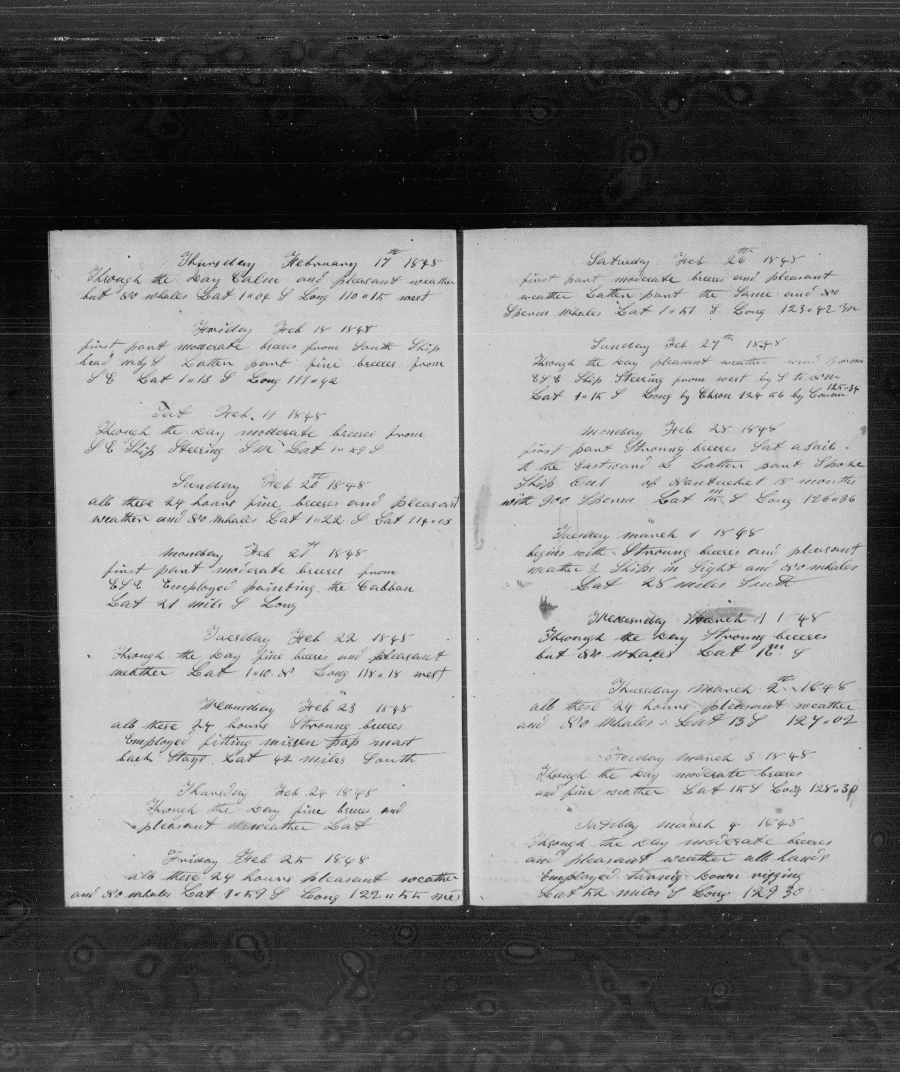 Thurseday Feebruary 17th 1848
Through the Day Calm and pleasant weather
but No whales Lat 1"04 S Long 110"15 west
Friday Feb 18 1848
first part moderate brees from South Ship
head WbyS Latter part fine breees from
S E Lat 1"18 S Long 111"42
Sat Feb 19 1848
Through the Day moderate breees from
S E Ship Steering SW Lat 1"59 S
Sunday Feb 20th 1848
all these 24 hours fine breees and pleasant
weather and No whales Lat 1"22 S Lat 114"03
Monday Feb 21st 1848
first part moderate breees from
ESE Employed painting the Cabban
Lat 21 miles S Long
Tuesday Feb 22 1848
Through the Day fine brees and pleasant
weather Lat 1"10 Long 118"18 west
Wedensday Feb 23 1848
all these 24 hours Stroung brees
Employed fitting missen top mast
back Stays. Lat 42 miles South
Thursday Feb 24 1848
Through the Day fine brees and
pleasant weather Lat
Friday Feb 25 1848
all these 24 hours pleasant weather
and No whales Lat 1"59 S Long 122"55 west
Saturday Feb 26th 1848
first part moderate brees and pleasant
weather Latter part the Same and No
Sperm whales Lat 1"51 S Long 123"42 W
Sunday Feb 27th 1848
Through the Day pleasant weather wind from
ESE Ship Steering from west by S to
Lat 1"15 S Long by Chron 124 56 by 125"34
Monday Feb 28 1848
first part Stroung breees Sat a Sail
to the Eastward Latter part Spoke
Ship of Nantucket 18 months
with 900 Sperm Lat S Long 126"36
Tuesday March 1 1848
begins with Stroung brees and pleasant
weather 2 Ships in Sight and No whales
Lat 28 miles South
Wedensday March 1 48
Through the Day Stroung breees
but No whales Lat S
Thursday March 2th 1848
all these 24 hours pleasant weather
and No whales Lat 13 S 127"02
Friday March 3 1848
Through the Day moderate breees
and fine weather Lat 15 S Long 128"30
Saturday March 4 1848
Through the Day moderate breees
and pleasant weather all hands
Employed turnig Down rigging
Lat 52 miles S Long 129 30